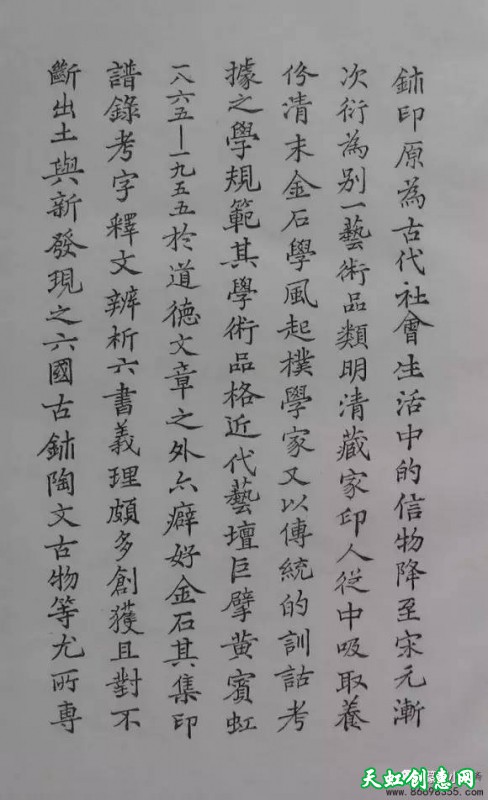 鉥印原為古代社會生活中的信物降至宋元漸
次衍為別一藝術品類明清藏家印人從中吸取養
份清末金石學風起樸學家又以傳統的訓詁考
據之學規範其學術品格近代藝壇巨擘黄賓虹
一八六五—一九五五於道德文章之外亦癖好金石其集印
譜錄考字釋文辨析六書義理頗多創獲且對不
斷出土與新發現之六國古鉥陶文古物等尤所專
天虹创惠网
www.86898355.com